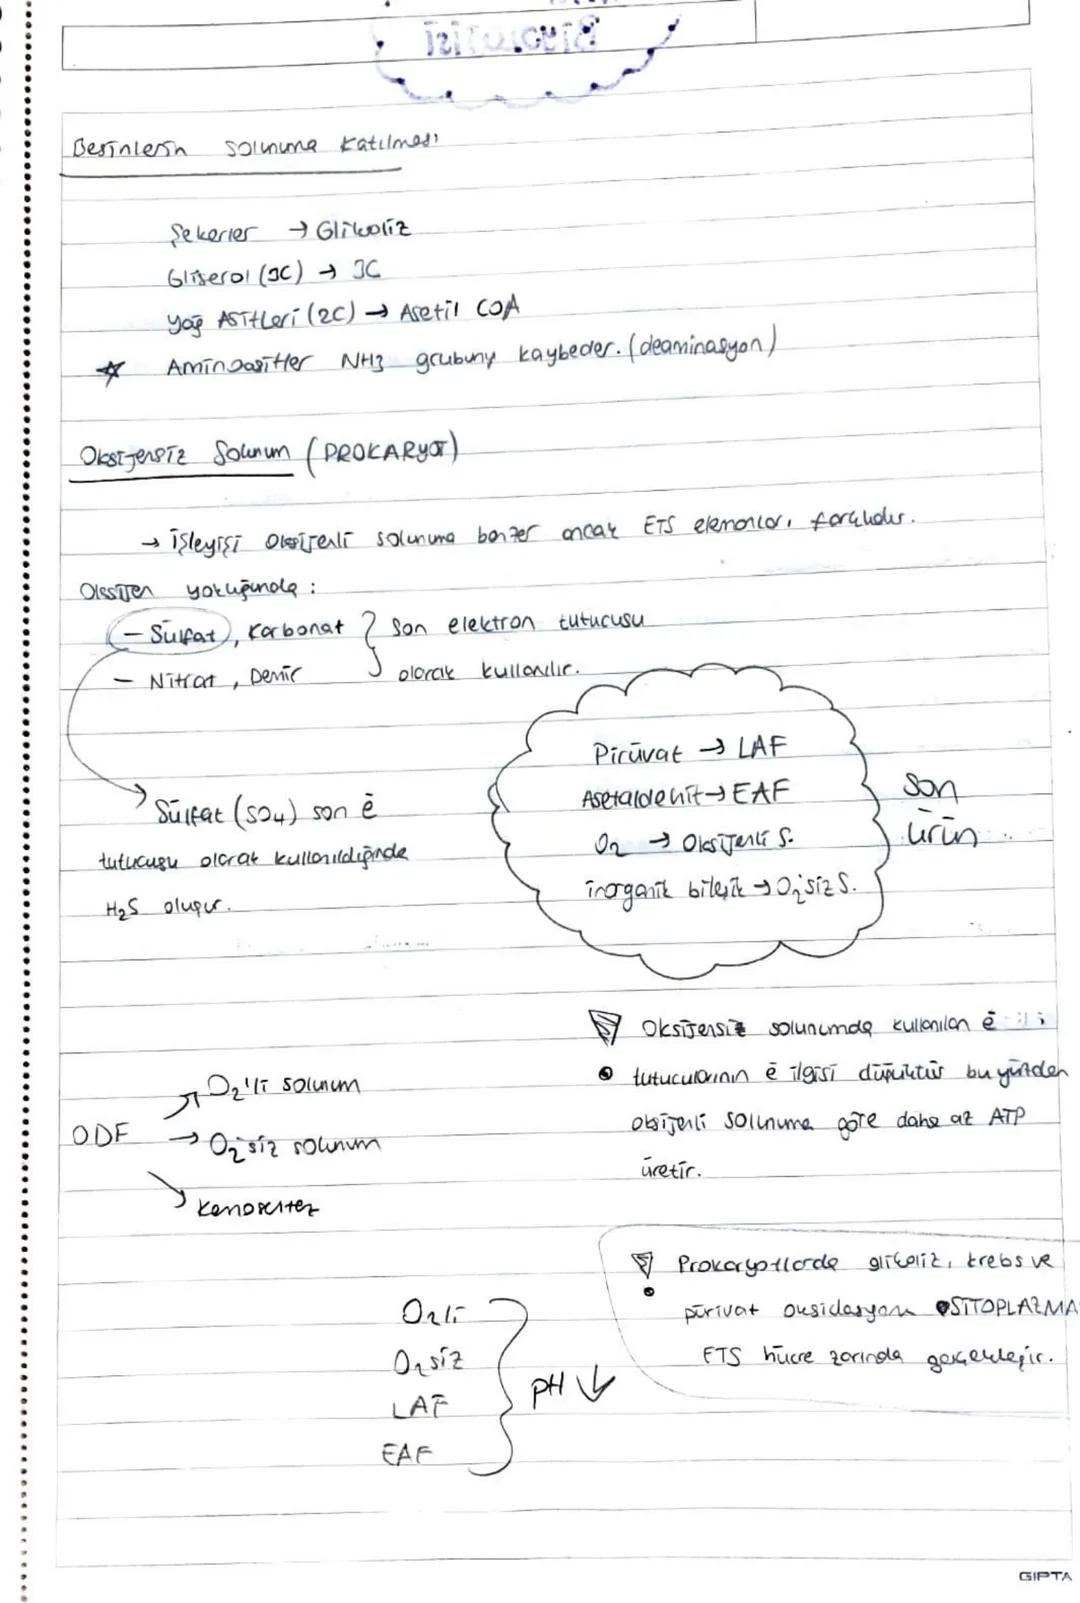 Besinlerin solunuma katılması
Şekerler → Glikoliz
Gliserol (3C) → 3C
Yağ Asitleri (2C) → Asetil COA
☆ Aminoasitler NH3 grubunu kaybeder. (deaminasyon)
Oksijensiz Solunum (PROKARYOT)
→ işleyişi oksijenli solunuma benzer ancak ETS elemanları farklıdır.
Oksijen yokluğunda :
– Sülfat, Karbonat } Son elektron tutucusu
– Nitrat, Demir olarak kullanılır.
Pirüvat → LAF
Asetaldehit → EAF
O2 → Oksijenli S.
inorganik bileşik → O2'siz S.
son
ürün
Sülfat (SO4) son ē
tutucusu olarak kullanıldığında
H2S oluşur.
Oksijensiz solunumda kullanılan ē
tutucularının ē ilgisi düşüktür bu yüzden
oksijenli solunuma göre daha az ATP
üretir.
ODF
O2'li solunum
→ O2'siz solunum
Kemosentez
Prokaryotlarda glikoliz, krebs ve
pürivat oksidasyonu SİTOPLAZMA
ETS hücre zarında gerçekleşir.
O2li
O2siz
LAF
EAF
pH ↓
GIPTA